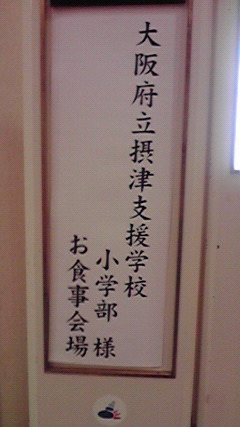 大阪府立摂津支援学校
小学部 様
お食事会場